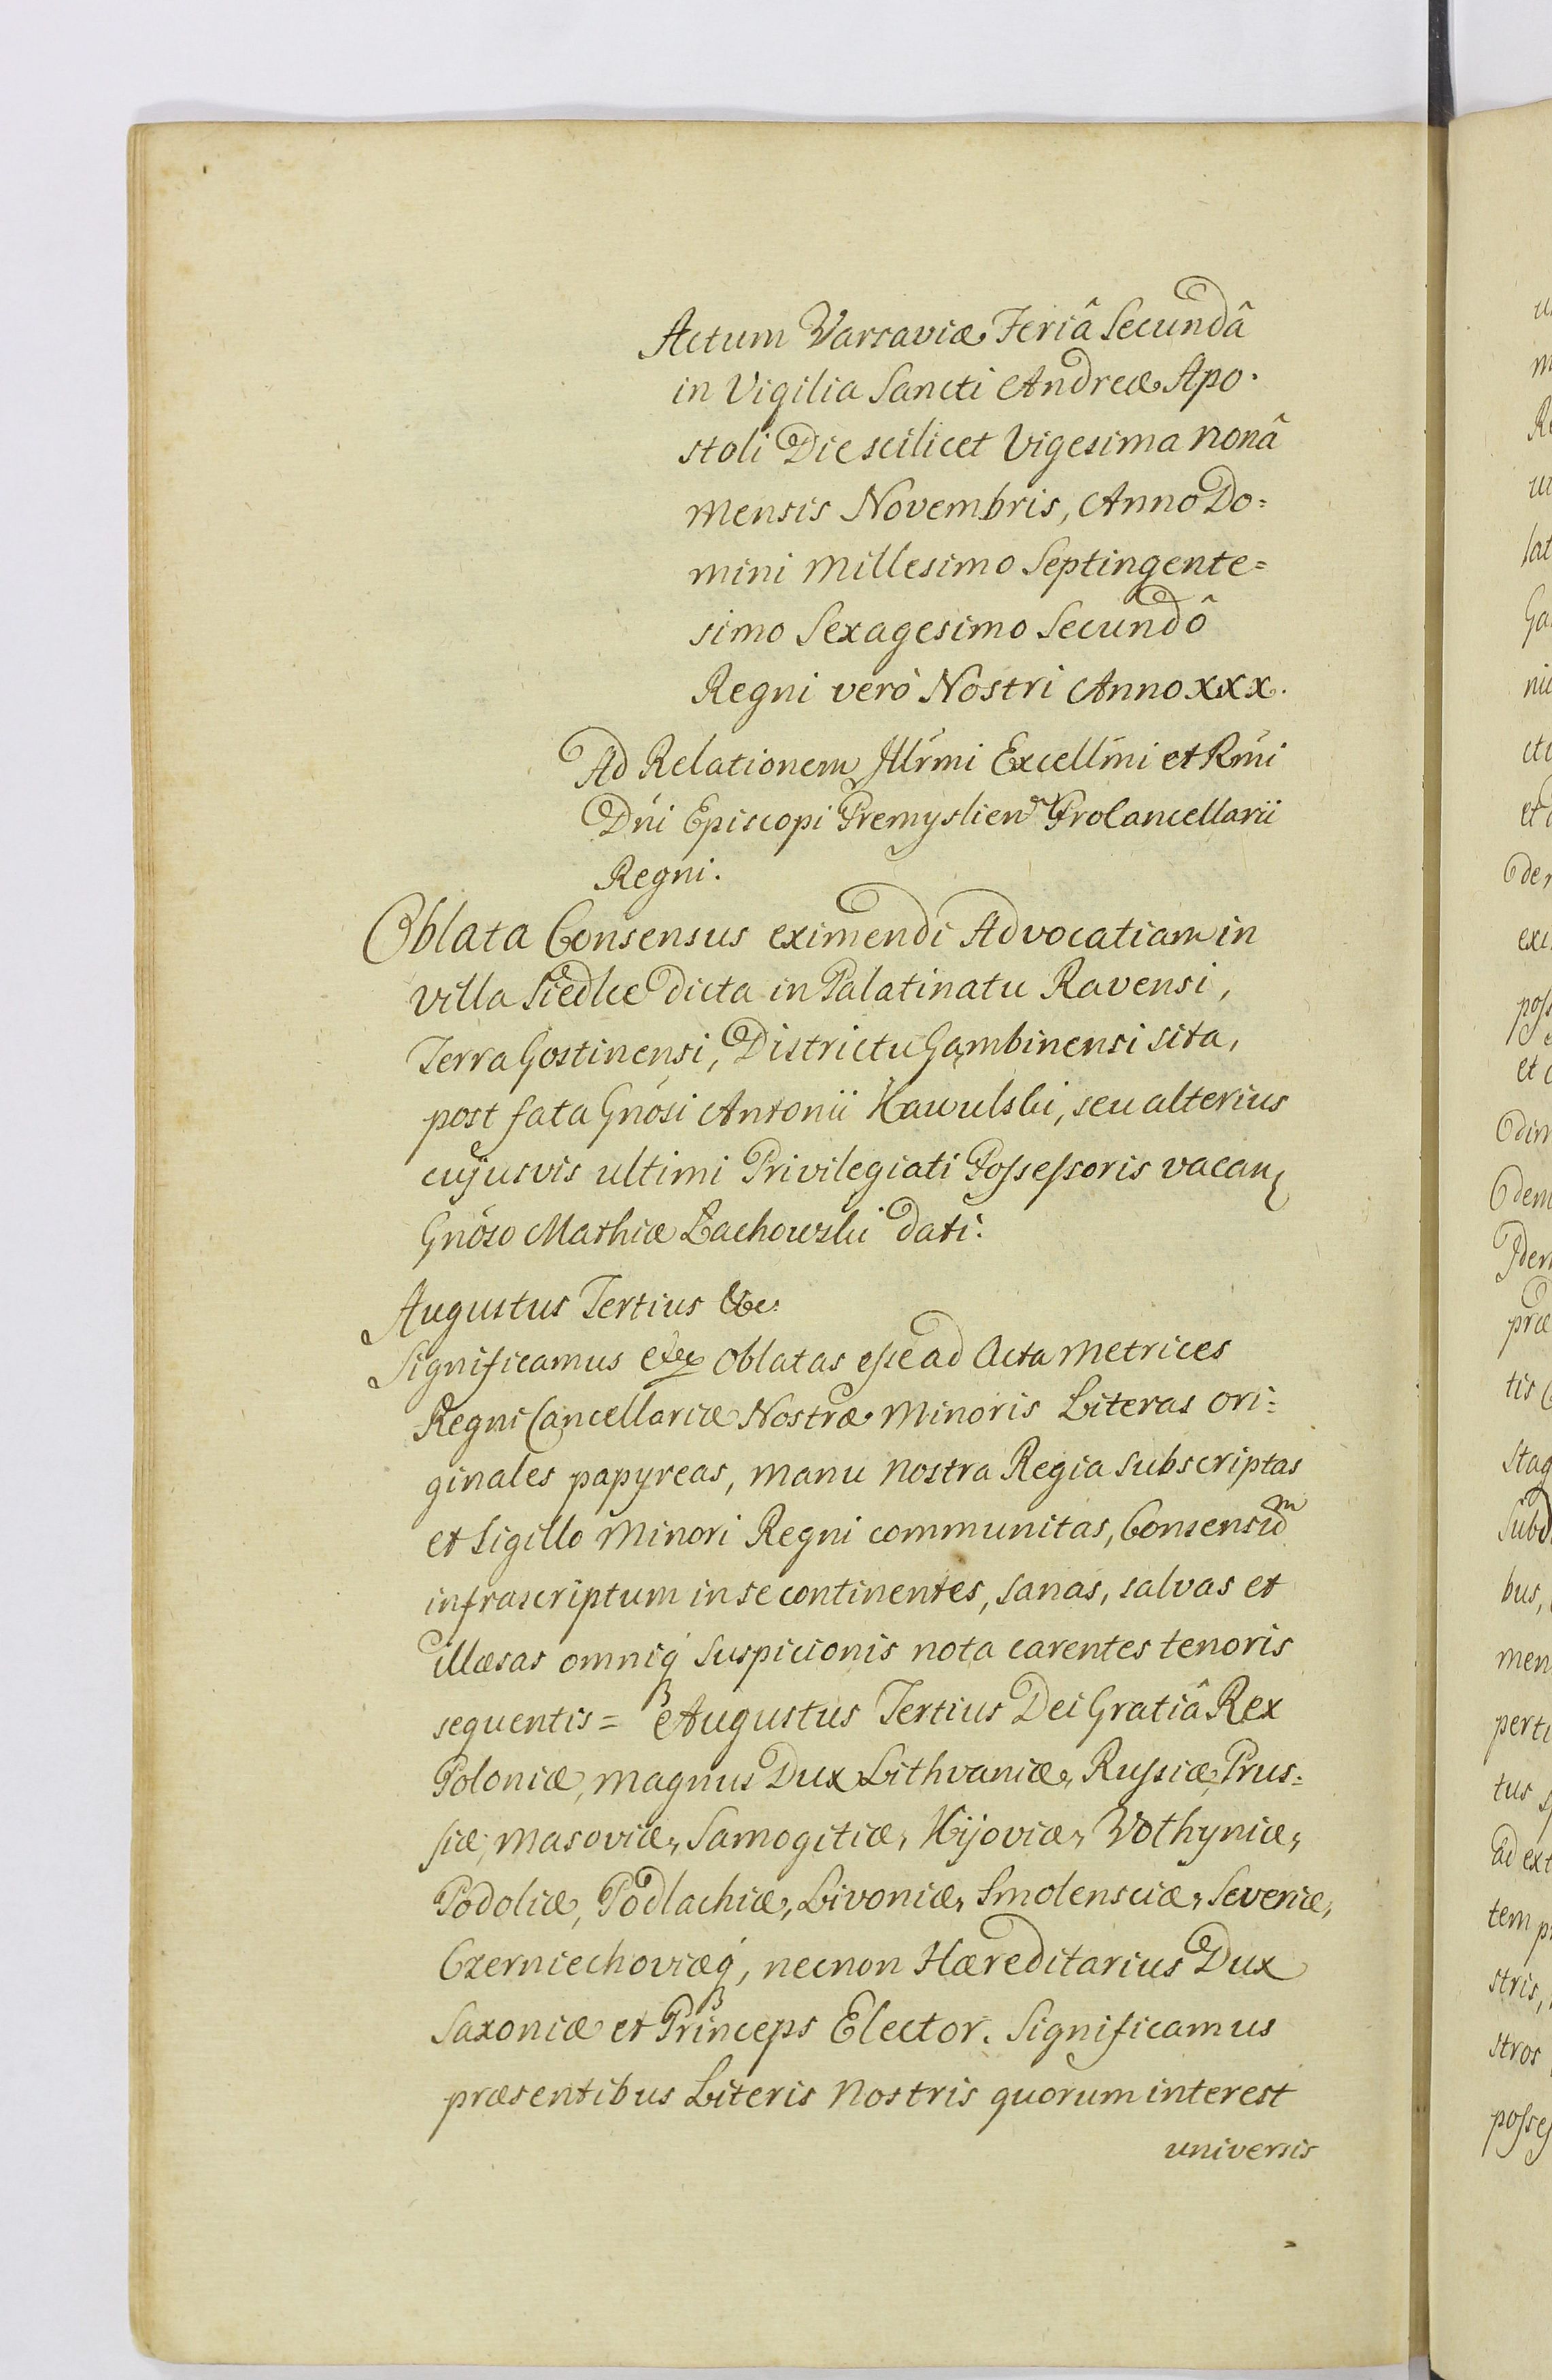 Actum Varsaviæ Feriâ Secundâ
in Vigilia Sancti Andreæ Apo-
stoli Die scilicet Vigesima nonâ
mensis Novembris, Anno Do=
mini millesimo Septingente=
simo Sexagesimo Secundô
Regni verò Nostri Anno XXX.
Ad Relationem Illrmi Excellmi et Rmi
Dni Episcopi Premyslien Procancellarii
Regni.
Oblata Consensus eximendi Advocatiam in
villa Siedlce dicta in Palatinatu Ravensi,
Terra Gostinensi, Districtu Gąmbinensi sita,
post fata Gnosi Antonii Kawulski, seu alterius
cujusvis ultimi Privilegiati Possessoris vacan
Gnoso Mathiæ Łachowski dati.
Augustus Tertius &c.
Significamus &c. Oblatas esse ad Acta Metrices
Regni Cancellariæ Nostræ Minoris Literas ori=
ginales papyreas, manu nostra Regia subscriptas
et Sigillo Minori Regni communitas, Consensum
infrascriptum in se continentes, sanas, salvas et
illæsas omniq́ suspicionis nota carentes tenoris
sequentis = Augustus Tertius Dei Gratiâ Rex
Poloniæ, Magnus Dux Lithvaniæ, Russiæ, Prus=
siæ, Masoviæ, Samogitiæ, Kijoviæ, Volhyniæ,
Podoliæ, Podlachiæ, Livoniæ, Smolensciæ, Severiæ,
Czerniechoviæq́, necnon Hæreditarius Dux
Saxoniæ et Princeps Elector. Significamus
præsentibus Literis Nostris quorum interest
universis